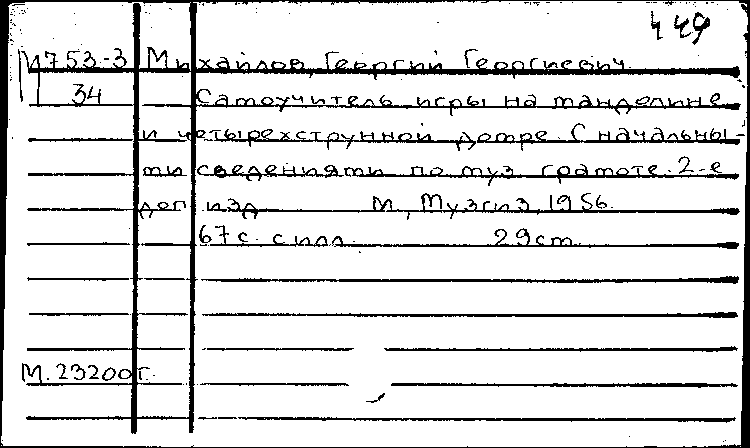 449
М753-3 Михайлов, Георгий Георгиевич.
34 Самоучитель игры на мандолине
и четырехструнной домре. С начальны-
ми сведениями по муз. грамоте. 2-е
доп. изд. М., Музгиз, 1956.
67 с. с илл. 29 см.
М. 23200 г.